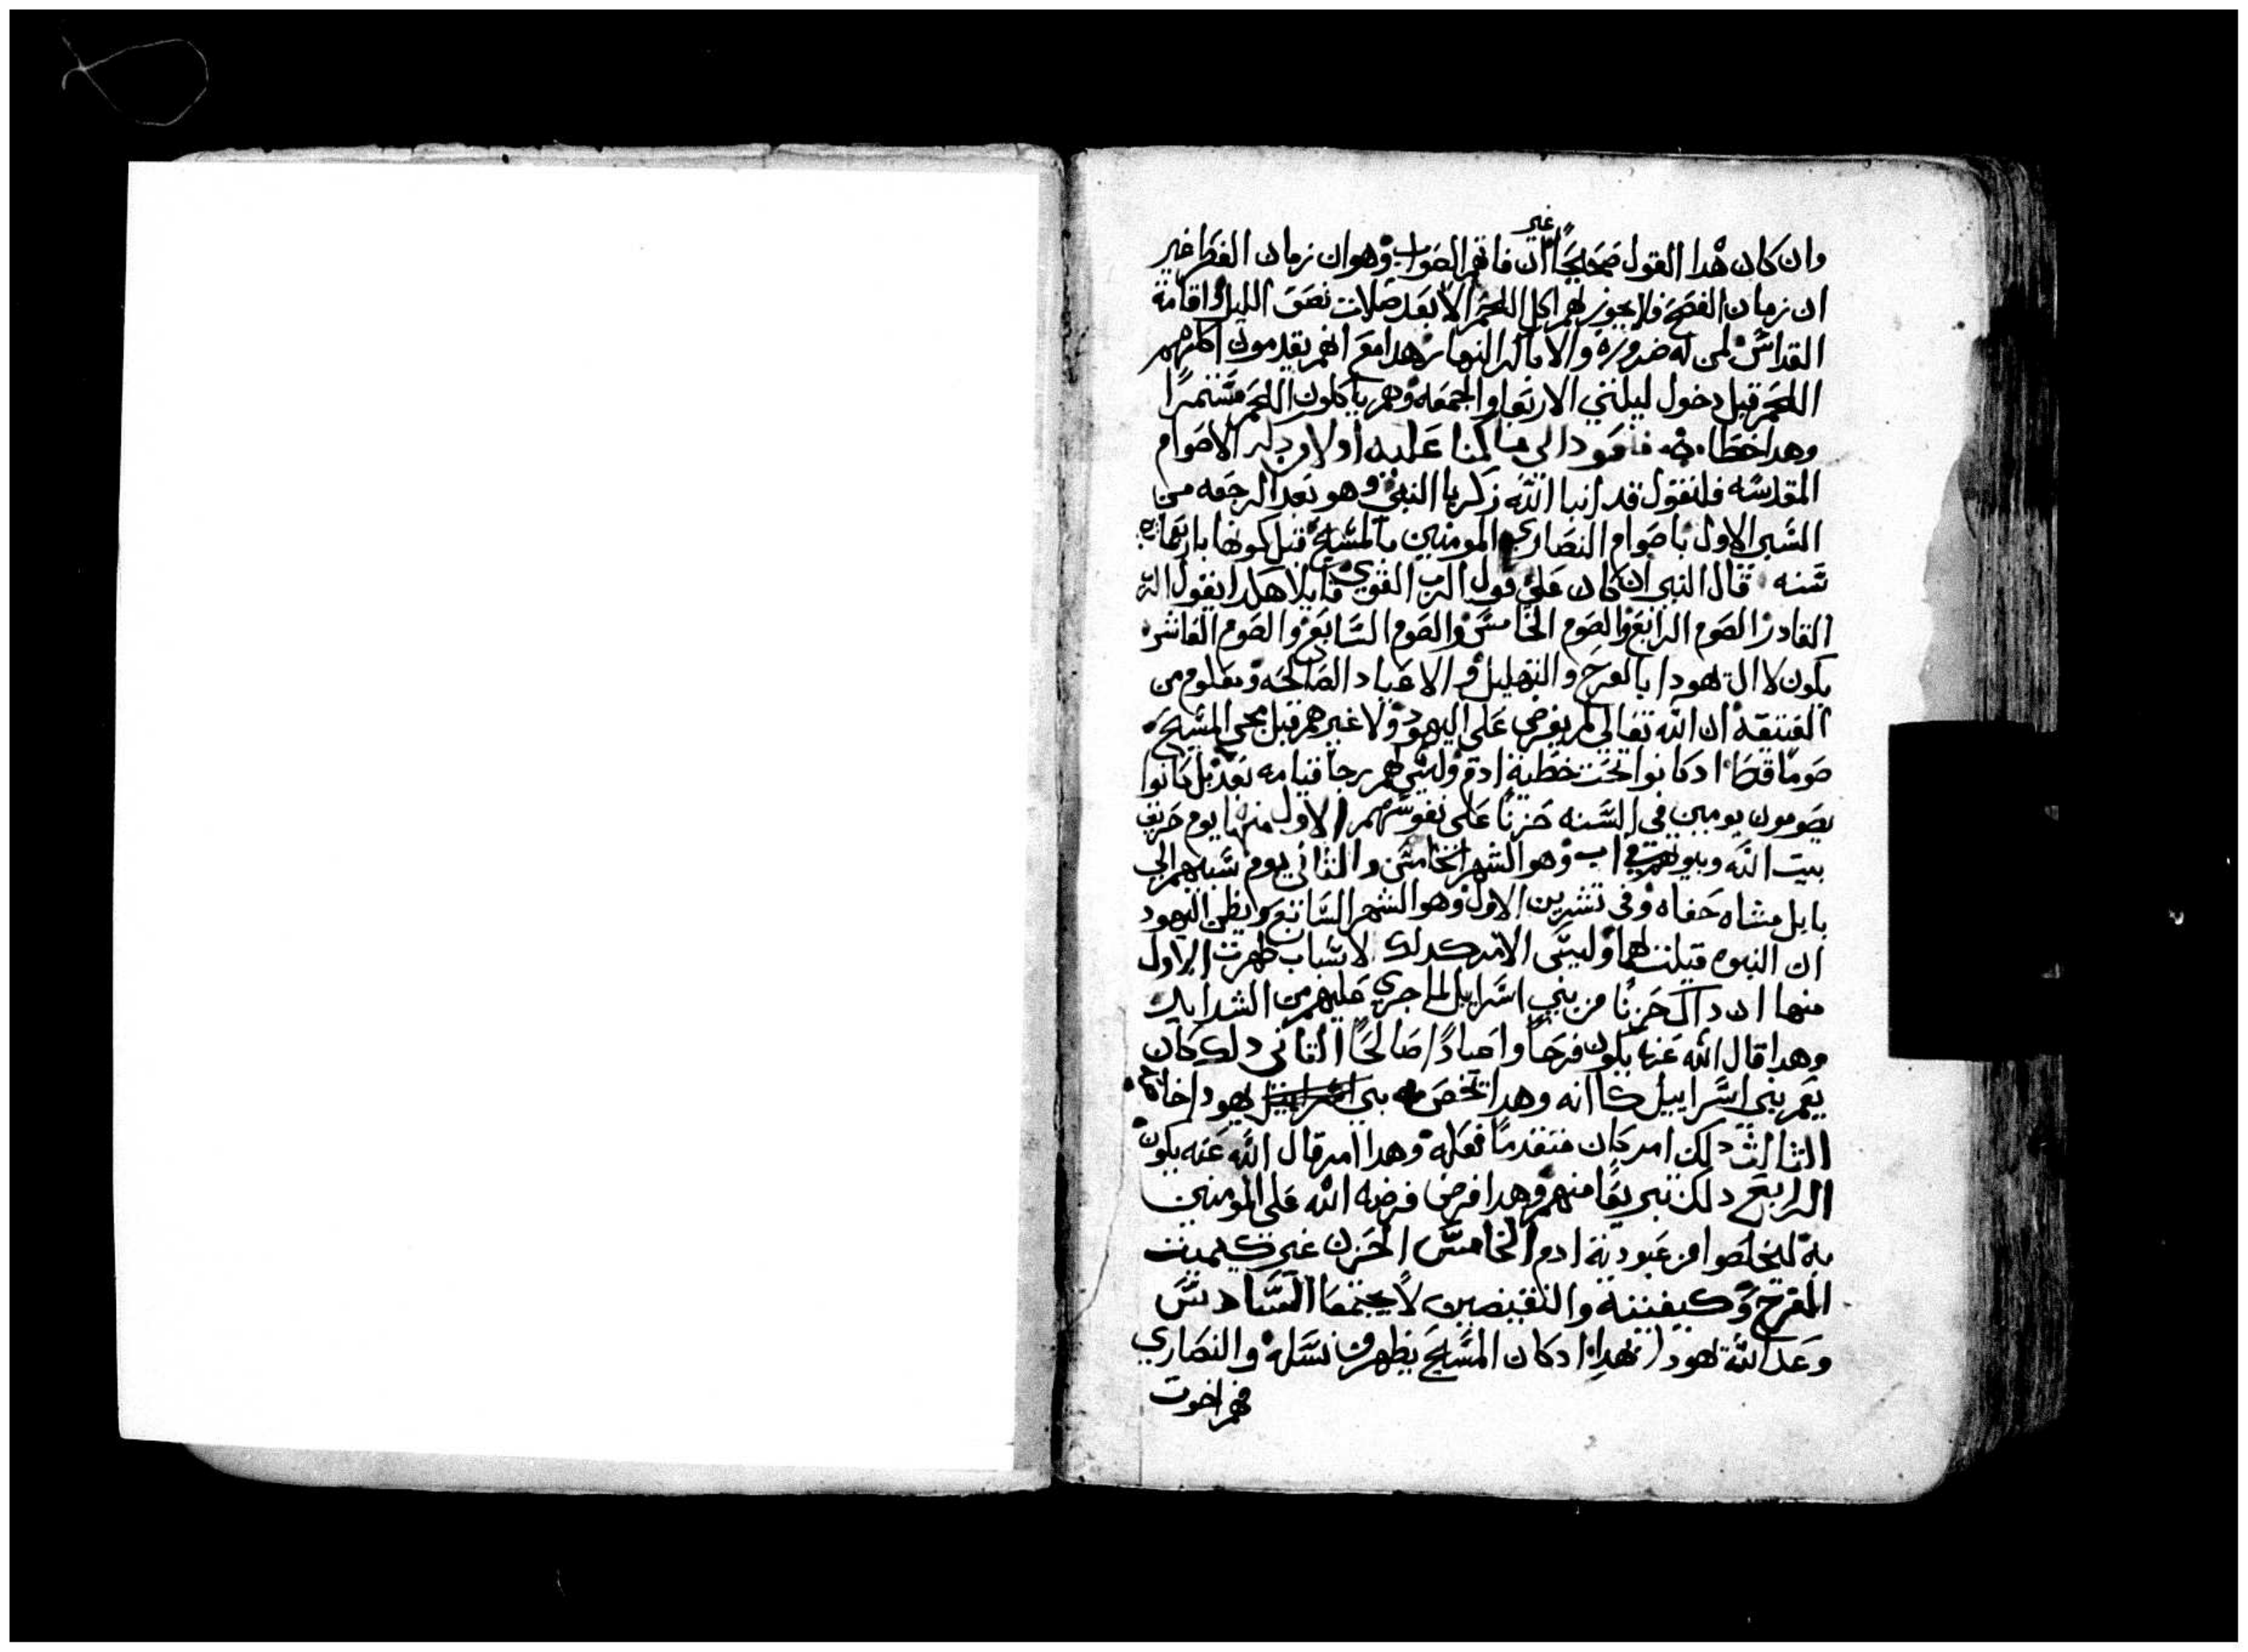 غير
وان كان هدا القول صحيحًا ان فاتهم الصواب وهو ان زمان الفطر غير
ان زمان الفصح فلا يجوز لهم اكل اللحم الا بعد صلات نصف الليل واقامة
القداس لمن له ضروره والا باكر النهار هدا مع انهم يقدمون اكثرهم
اللحم قبل دخول ليلتي الاربعا والجمعه وهم ياكلون اللحم مستمرًا
وهدا خطاء فنعود الى ما كنا عليه اولا من دكر الاصوام
المقدسه فلنقول قد انبا الله زكريا النبي وهو بعد الرجعه من
السبي الاول باصوام النصارى المومنين بالمسيح قبل كونها باربعمايه
سنه قال النبي ان كان علي قول الرب القوي قايلا هكدا يقول الرب
القادر الصوم الرابع والصوم الخامس والصوم السابع والصوم العاشر
يكون لال يهودا بالفرح والتهليل والاعياد الصالحه ومعلوم من
العتيقة ان الله تعالى لم يفرض على اليهود ولا غيرهم قبل مجي المسيح
صومًا قط ادكانوا تحت خطية ادم وليس لهم رجا قيامه بعد بل كانوا
يصومون يومين في السنه حزنًا على نفوسهم الاول منها يوم حريق
بيت الله وبيوتهم في اب وهو الشهر الخامس والثاني يوم سبيهم الي
بابل مشاه حفاه وفي تشرين الاول وهو الشهر السابع ويظن اليهود
ان النبوه قيلت لهما وليس الامر كدلك لاسباب ظهرت الاول
منها ان داك حزنًا من بني اسرايل لما جري عليهم من الشدايد
وهدا قال الله عنه يكون فرحًا واعيادًا صالحًا الثاني دلك كان
يعم بني اسراييل كافه وهدا تخصص به بني يهودا خاصه
الثالث دلك امر كان متقدمًا فعله وهدا امر قال الله عنه يكون
الرابع دلك تبريعًا منهم وهدا فرض فرضه الله على المومنين
به ليخلصوا من عبودية ادم الخامس الحزن غير كيميت
الفرح وكيفيته والنقيضين لا يجتمعا السادس
وعد الله يهودا بهدا ادكان المسيح يظهر من نسله والنصاري
فهم اخوت